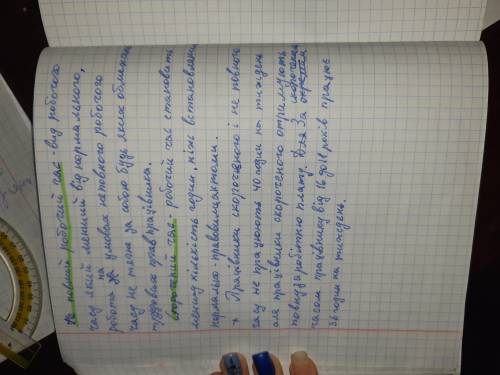 Не повний робочий час - вид робочого
часу який менший від нормального,
робота на умовах неповного робочого
часу не тягне за собою будь яких обмежень
трудових прав працівника.
скорочений час - робочий час становить
меншу кількість годин, ніж встановлено
нормально правовими актами.
→ Працівники скороченного і не повного
часу не працюють 40 годин на тиждень
але працівники скороченого отримують
повну заробітню плату. Для За скороченим
часом працівнику від 16 до 18 років працює
36 годин на тиждень.